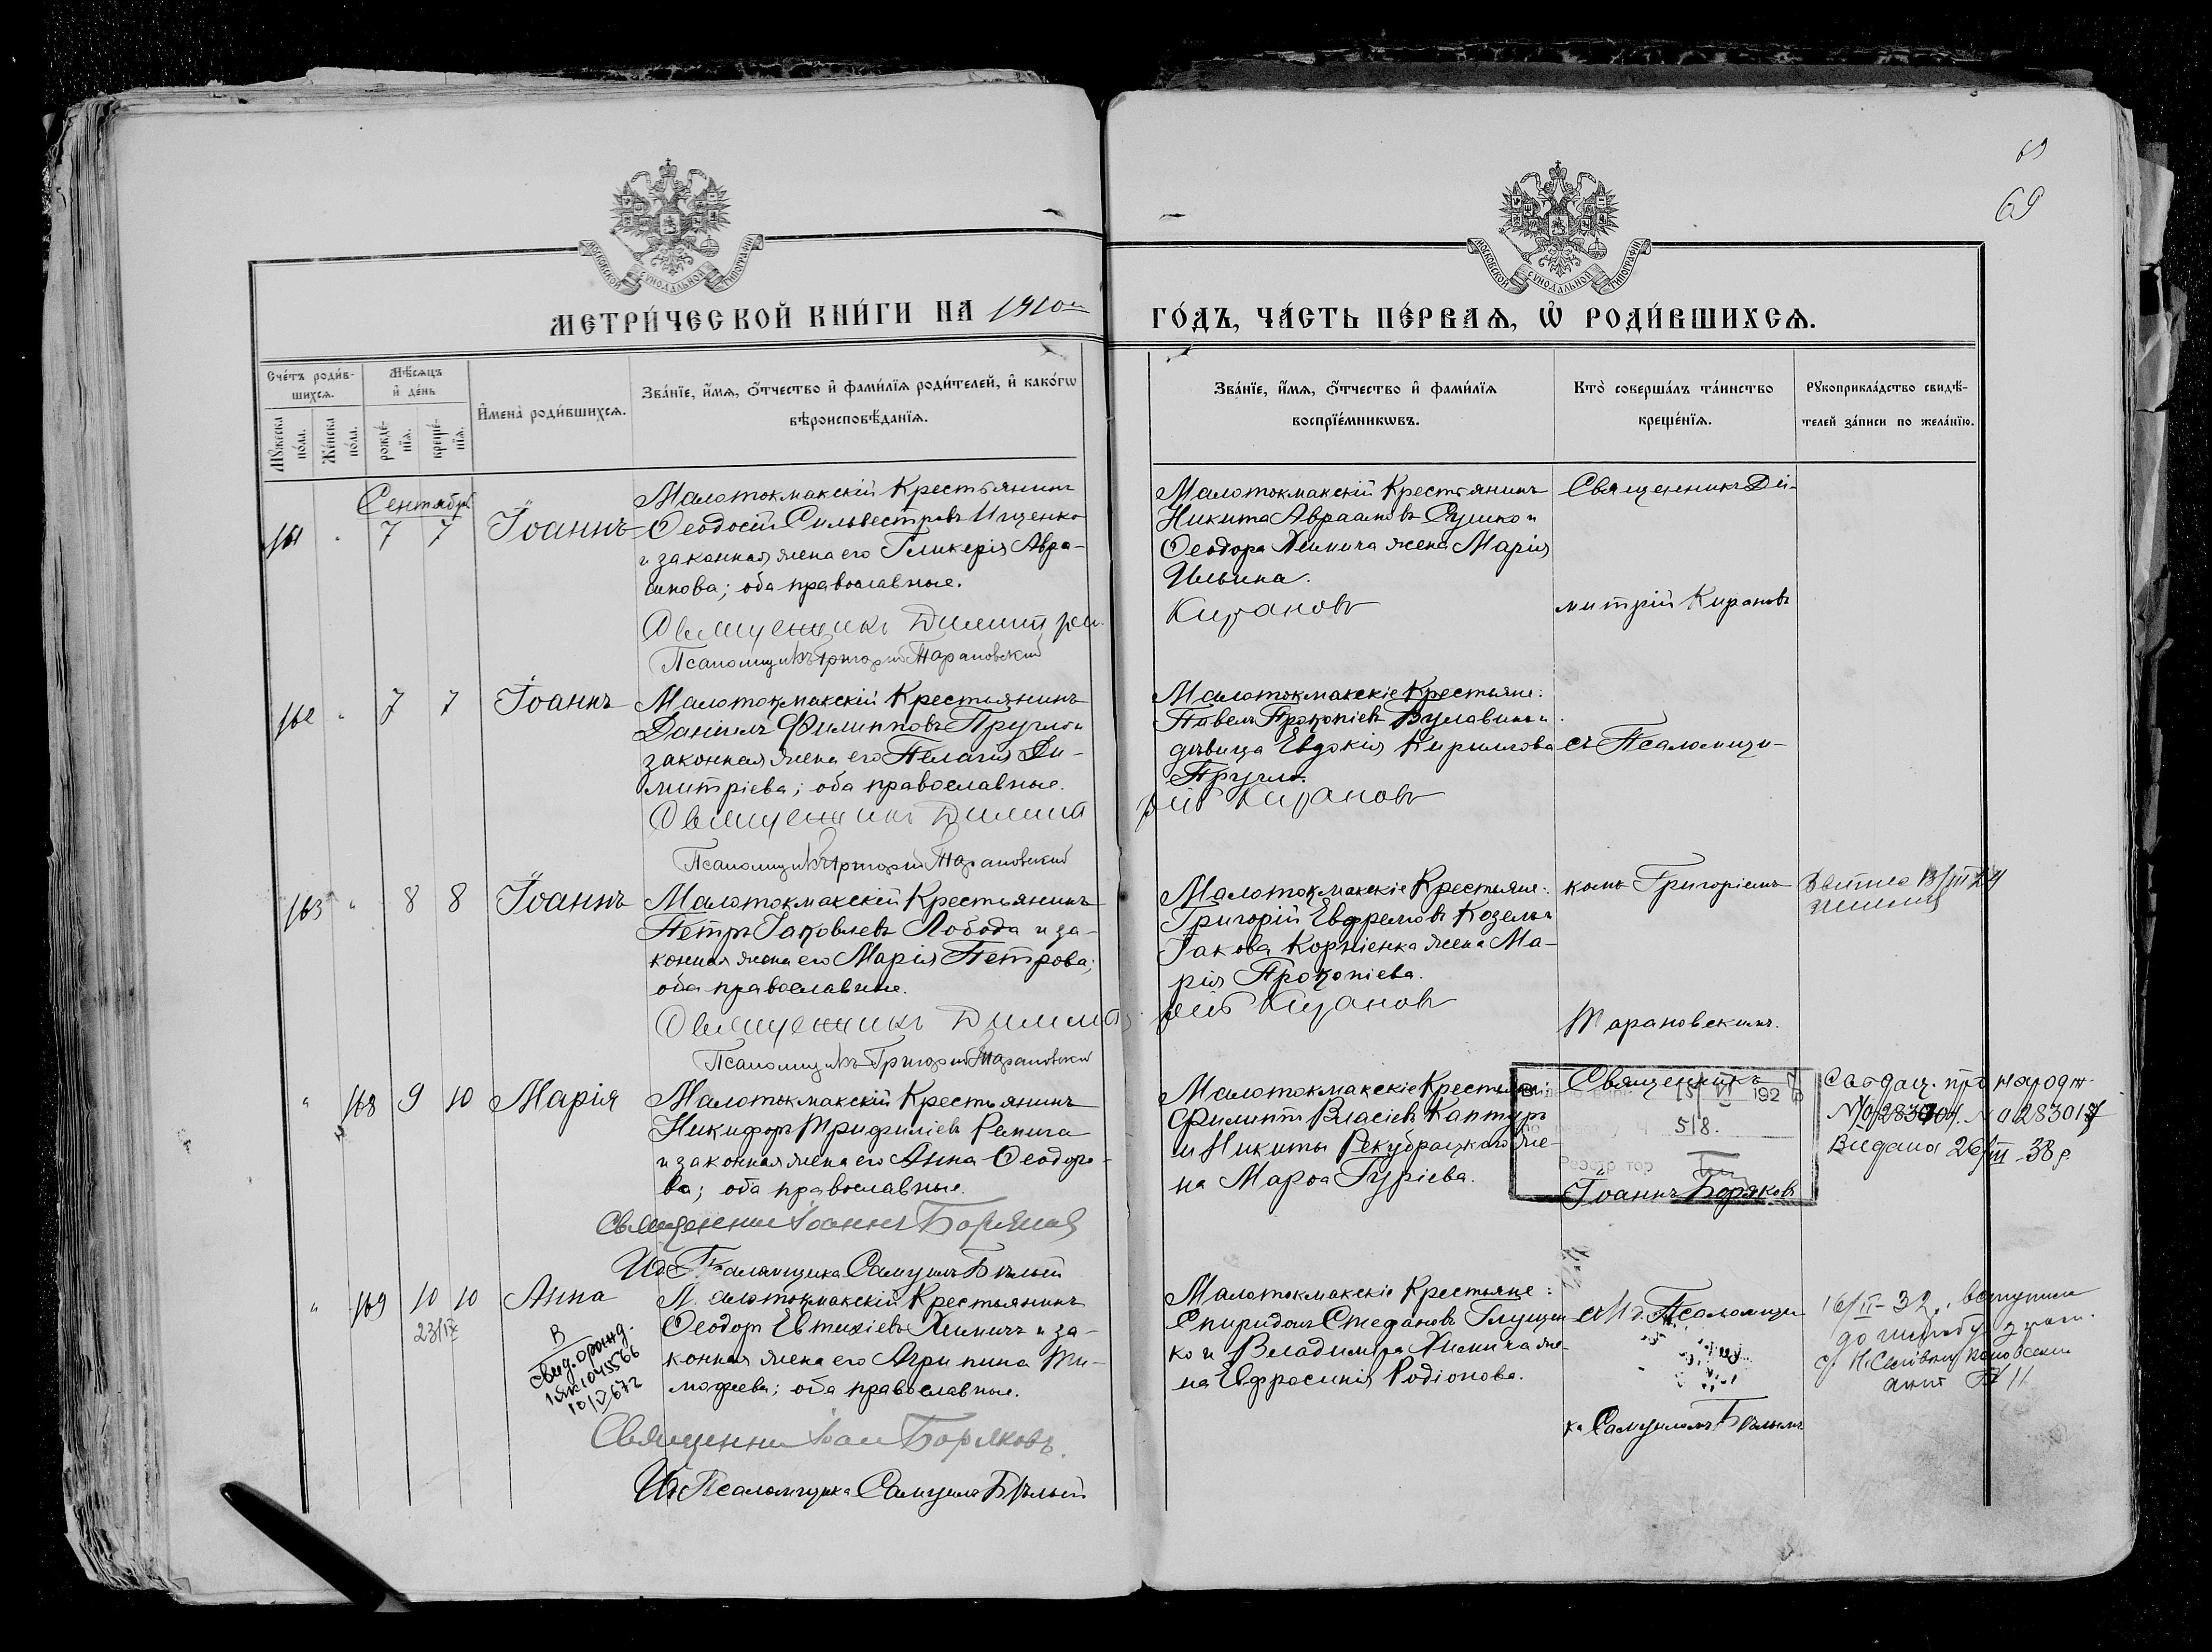 69
69
МОСКОВСКОЙ СѴНОДАЛЬНОЙ ТИПОГРАФІИ
МОСКОВСКОЙ СѴНОДАЛЬНОЙ ТИПОГРАФІИ
МЕТРИ́ЧЕСКОЙ КНИ́ГИ НА 1910й
ГО́ДЪ, ЧА́СТЬ ПЕ́РВАѦ, Ѡ҆ РОДИ́ВШИХСѦ.
Сче́тъ роди́в-
шихсѧ.
Мꙋ́жеска по́ла.
Же́нска по́ла.
Мѣ́сѧцъ
и҆ де́нь
рожде́-
нїѧ.
креще́-
нїѧ.
И҆мена̀ роди́вшихсѧ.
Зва́нїе, и҆́мѧ, ѻ҆́тчество и҆ фами́лїѧ роди́телей, и҆ како́гѡ
вѣроисповѣ́данїѧ.
Зва́нїе, и҆́мѧ, ѻ҆́тчество и҆ фами́лїѧ
воспрїе́мникѡвъ.
Кто̀ соверша́лъ та́инство
креще́нїѧ.
Рꙋкоприкла́дство свидѣ́-
телей за́писи по жела́нїю.
Сентябрь
161 " 7 7 Іоаннъ
Малотокмакскій Крестьянинъ
Ѳеодосій Сильвестровъ Ищенко
и законная жена его Гликерія Авра-
амова; оба православные.
Священникъ Димитрій
Псаломщикъ Григорій Тарановскій
Малотокмакскій Крестьянинъ
Никита Авраамовъ Сушко и
Ѳеодора Химича жена Марія
Ильина.
Кирановъ
Священникъ Ди-
митрій Кирановъ
162 " 7 7 Іоаннъ
Малотокмакскій Крестьянинъ
Даніилъ Филипповъ Пругло и
законная жена его Пелагія Ди-
митріева; оба православные.
Священникъ Димит
Псаломщикъ Григорій Тарановскій
Малотокмакскіе Крестьяне:
Павелъ Прокопіевъ Булавинъ и
дѣвица Евдокія Кириллова
Пругло.
рій Кирановъ
съ Псаломщи-
163 " 8 8 Іоаннъ
Малотокмакскій Крестьянинъ
Петръ Іаковлевъ Лобода и за-
конная жена его Марія Петрова;
оба православные.
Священникъ Димит
Псаломщикъ Григорій Тарановскій
Малотокмакскіе Крестьяне:
Григорій Евфремовъ Козелъ и
Іакова Корніенка жена Ма-
рія Прокопіева.
рій Кирановъ
комъ Григоріемъ
Тарановскимъ.
" 168 9 10 Марія
Малотокмакскій Крестьянинъ
Никифоръ Трифиліевъ Репича
и законная жена его Анна Ѳеодоро-
ва; оба православные.
Священникъ Іоаннъ Боряковъ
И.д. Псаломщика Самуилъ Бѣлый
Малотокмакскіе Крестьяне:
Филиппъ Власіевъ Каптуръ
и Никиты Рекубрацкаго же-
на Марѳа Гуріева.
Священникъ
15 VI 192
518.
Іоаннъ Боряковъ
№ 0283017
Видана 26/III-38 р.
" 169 10 10 Анна
23/IX
10/V 67г
Малотокмакскій Крестьянинъ
Ѳеодоръ Евтихіевъ Химичъ и за-
конная жена его Агрипина Ти-
моѳеева; оба православные.
Священник Іоан Боряковъ.
Ид Псаломщика Самуилъ Бѣлый
Малотокмакскіе Крестьяне:
Спиридонъ Стефановъ Глущен-
ко и Владиміра Химича же-
на Евфросинія Родіонова.
съ И.д. Псаломщи
ка Самуиломъ Бѣлымъ
16/II-32 . вступила
до шлюбу з гром.
акт № 11